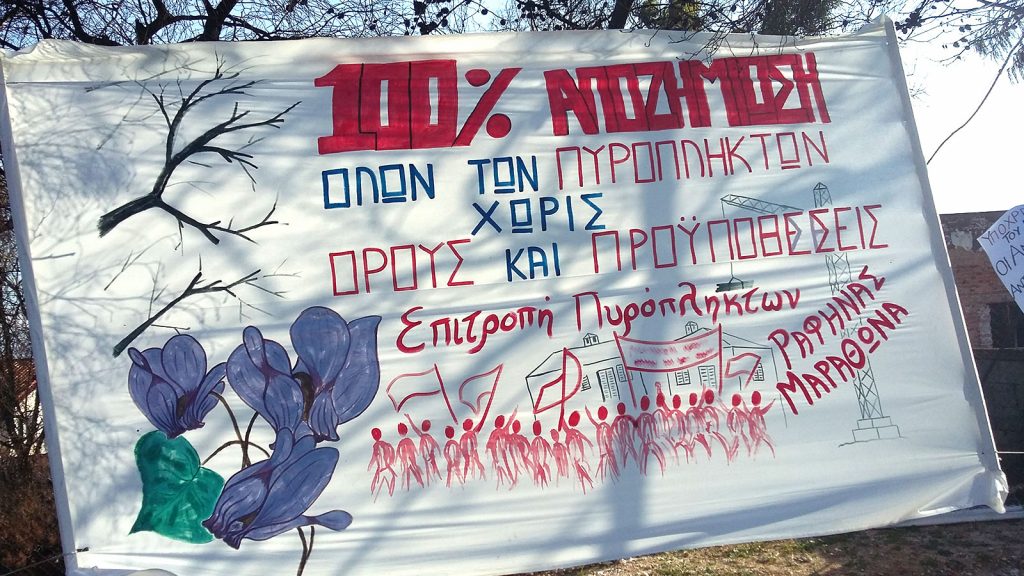 100% ΑΠΟΖΗΜΙΩΣΗ
ΟΛΩΝ ΤΩΝ ΠΥΡΟΠΛΗΚΤΩΝ
ΧΩΡΙΣ
ΟΡΟΥΣ ΚΑΙ ΠΡΟΫΠΟΘΕΣΕΙΣ
Επιτροπή Πυρόπληκτων
ΡΑΦΗΝΑΣ
ΜΑΡΑΘΩΝΑ
ΤΟΥ